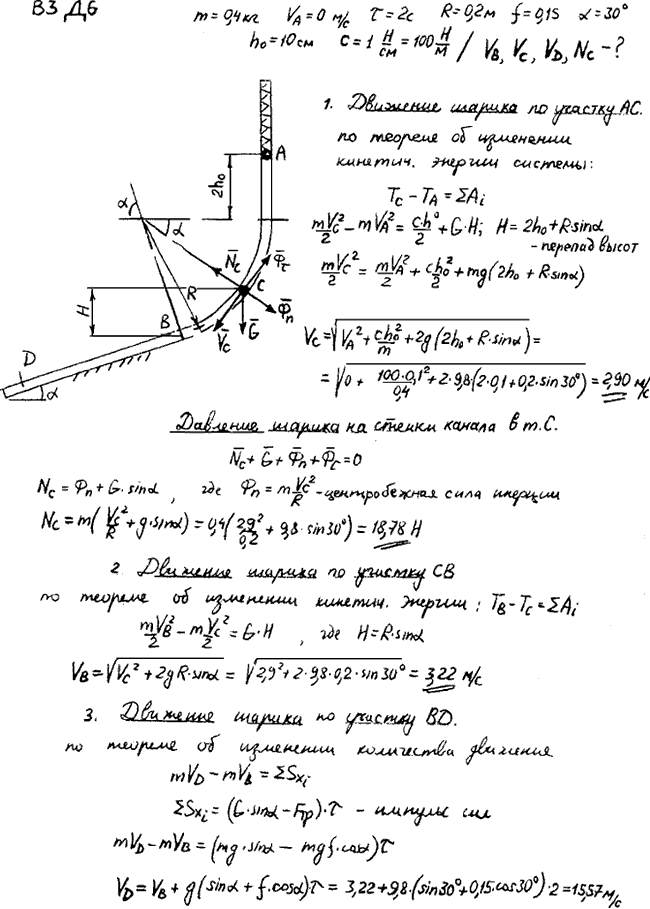 В3 Д6
m = 0,4 кг V_A = 0 м/с τ = 2с R = 0,2м f = 0,15 α = 30°
h₀ = 10см c = 1 Н/см = 100 Н/м / V_B, V_C, V_D, N_C - ?
1. Движение шарика по участку АС.
по теореме об изменении
кинетич. энергии системы:
T_C - T_A = ΣA_i
mV_C²/2 - mV_A²/2 = c·h₀²/2 + G·H; H = 2h₀ + R·sinα
- перепад высот
mV_C²/2 = mV_A²/2 + ch₀²/2 + mg(2h₀ + R·sinα)
V_C = √(V_A² + ch₀²/m + 2g(2h₀ + R·sinα)) =
= √(0 + 100·0,1²/0,4 + 2·9,8(2·0,1 + 0,2·sin30°)) = 2,90 м/с
A
2h₀
α
α
N̄_C
Φ̄_τ
R
C
H
Φ̄_n
B
V̄_C
Ḡ
D
α
Давление шарика на стенки канала в т.С.
N̄_C + Ḡ + Φ̄_n + Φ̄_τ = 0
N_C = Φ_n + G·sinα , где Φ_n = m V_C²/R - центробежная сила инерции
N_C = m(V_C²/R + g·sinα) = 0,4(2,9²/0,2 + 9,8·sin30°) = 18,78 Н
2. Движение шарика по участку СВ
по теореме об изменении кинетич. энергии: T_B - T_C = ΣA_i
mV_B²/2 - mV_C²/2 = G·H , где H = R·sinα
V_B = √(V_C² + 2gR·sinα) = √(2,9² + 2·9,8·0,2·sin30°) = 3,22 м/с
3. Движение шарика по участку BD.
по теореме об изменении количества движения
mV_D - mV_B = ΣS_xi
ΣS_xi = (G·sinα - F_тр)·τ - импульс сил
mV_D - mV_B = (mg·sinα - mgf·cosα)τ
V_D = V_B + g(sinα + f·cosα)τ = 3,22 + 9,8·(sin30° + 0,15·cos30°)·2 = 15,57 м/с